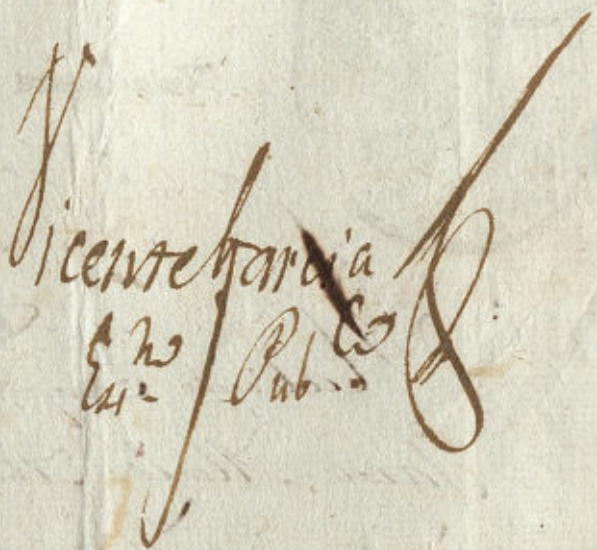 Vicente Garcia
Esn.º Pub.co